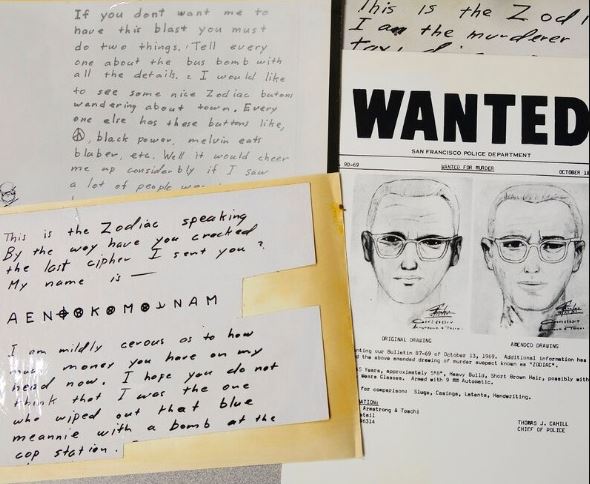 If you dont want me to
have this blast you must
do two things. Tell every
one about the bus bomb with
all the details. I would like
to see some nice Zodiac butons
wandering about town. Every
one else has these buttons like,
black power, melvin eats
blaber, etc. Well it would cheer
me up considerbly if I saw
a lot of people
This is the Zodiac speaking
By the way have you cracked
the last cipher I sent you?
My name is —
AEN⊕⊗K⊗M⊗⅃NAM
I am mildly cerous as to how
much money you have on my
head now. I hope you do not
think that I was the one
who wiped out that blue
meannie with a bomb at the
cop station.
This is the Zodi
I am the murderer
WANTED
SAN FRANCISCO POLICE DEPARTMENT
90-69 WANTED FOR MURDER OCTOBER 18
ORIGINAL DRAWING AMENDED DRAWING
nting our Bulletin 87-69 of October 13, 1969. Additional information has
the above amended drawing of murder suspect known as "ZODIAC".
Years, approximately 5'8", Heavy Build, Short Brown Hair, possibly with
Glasses. Armed with 9 MM Automatic.
for comparison: Slugs, Casings, Latents, Handwriting.
Armstrong & Toschi
THOMAS J. CAHILL
CHIEF OF POLICE